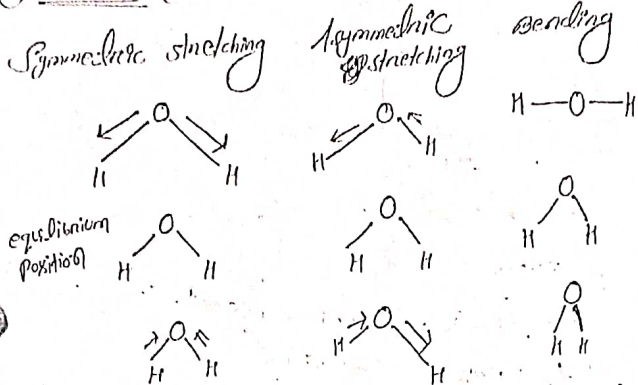 Symmetric stretching
Asymmetric stretching
Bending
O
H H
O
H H
H O H
equilibrium
position
O
H H
O
H H
O
H H
O
H H
O
H H
O
H H